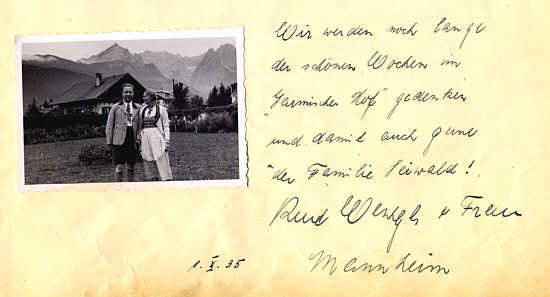 Wir werden noch lange
der schönen Wochen im
"Garmischer Hof" gedenken
und damit auch gerne
der Familie Seiwald!
u Frau
Mannheim
1. X. 35